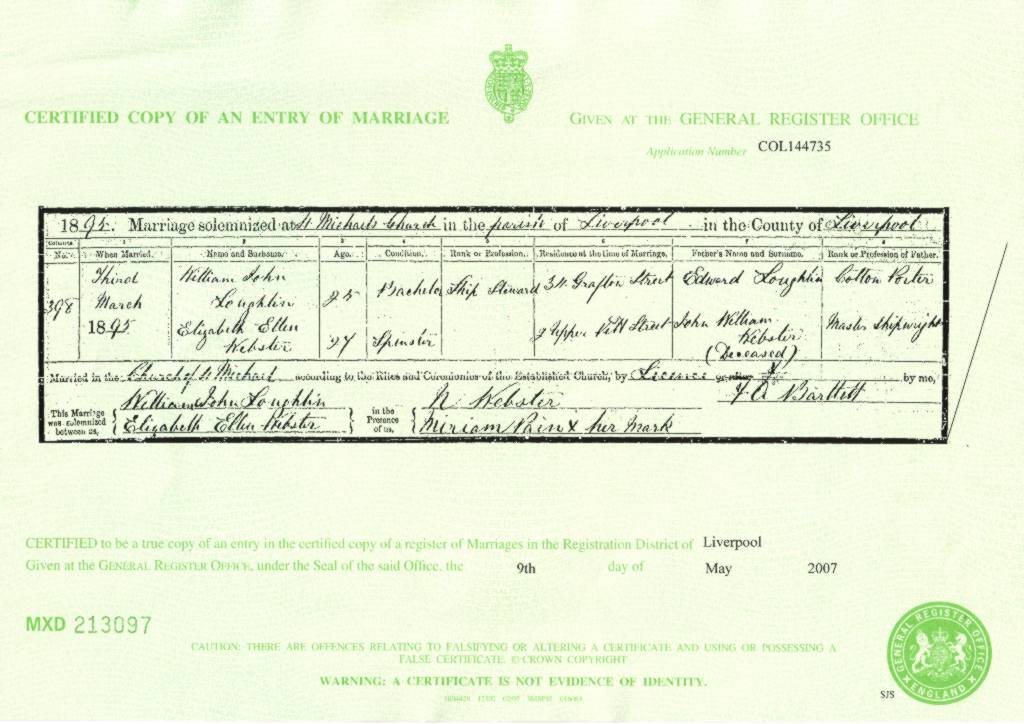 CERTIFIED COPY OF AN ENTRY OF MARRIAGE
GIVEN AT THE GENERAL REGISTER OFFICE
Application Number COL144735
1895. Marriage solemnized at St Michaels Church in the parish of Liverpool in the County of Liverpool
Columns 1 2 3 4 5 6 7 8
No. When Married. Name and Surname. Age. Condition. Rank or Profession. Residence at the time of Marriage. Father's Name and Surname. Rank or Profession of Father.
398 Third March 1895
William John Loughlin 25 Bachelor Ship Steward 34 Grafton Street Edward Loughlin Cotton Porter
Elizabeth Ellen Webster 27 Spinster 2 Upper Pitt Street John William Webster (Deceased) Master Shipwright
Married in the Church of St Michael according to the Rites and Ceremonies of the Established Church, by Licence by me,
William John Loughlin N. Webster Bartlett
This Marriage was solemnized between us, Elizabeth Ellen Webster in the Presence of us, Miriam Pain X her Mark
CERTIFIED to be a true copy of an entry in the certified copy of a register of Marriages in the Registration District of Liverpool
Given at the GENERAL REGISTER OFFICE, under the Seal of the said Office, the 9th day of May 2007
MXD 213097
CAUTION: THERE ARE OFFENCES RELATING TO FALSIFYING OR ALTERING A CERTIFICATE AND USING OR POSSESSING A
FALSE CERTIFICATE. © CROWN COPYRIGHT
WARNING: A CERTIFICATE IS NOT EVIDENCE OF IDENTITY.
GENERAL REGISTER OFFICE
ENGLAND
SJS